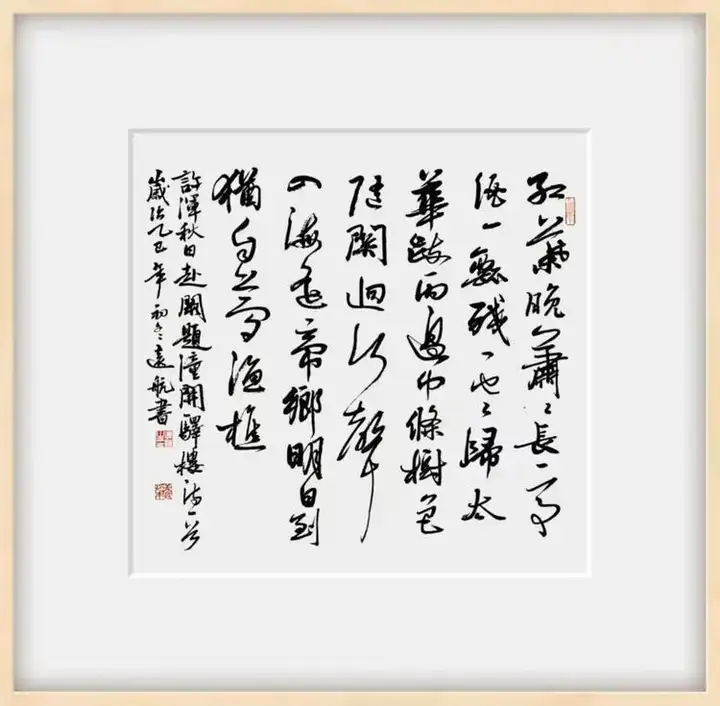 紅葉晚蕭〻長亭
酒一瓢殘雲歸太
華疏雨過中條樹色
隨關迥河聲
入海遥帝鄉明日到
猶自夢漁樵
許渾秋日赴闕題潼關驛樓詩一首
歲次乙巳年初冬遠航書